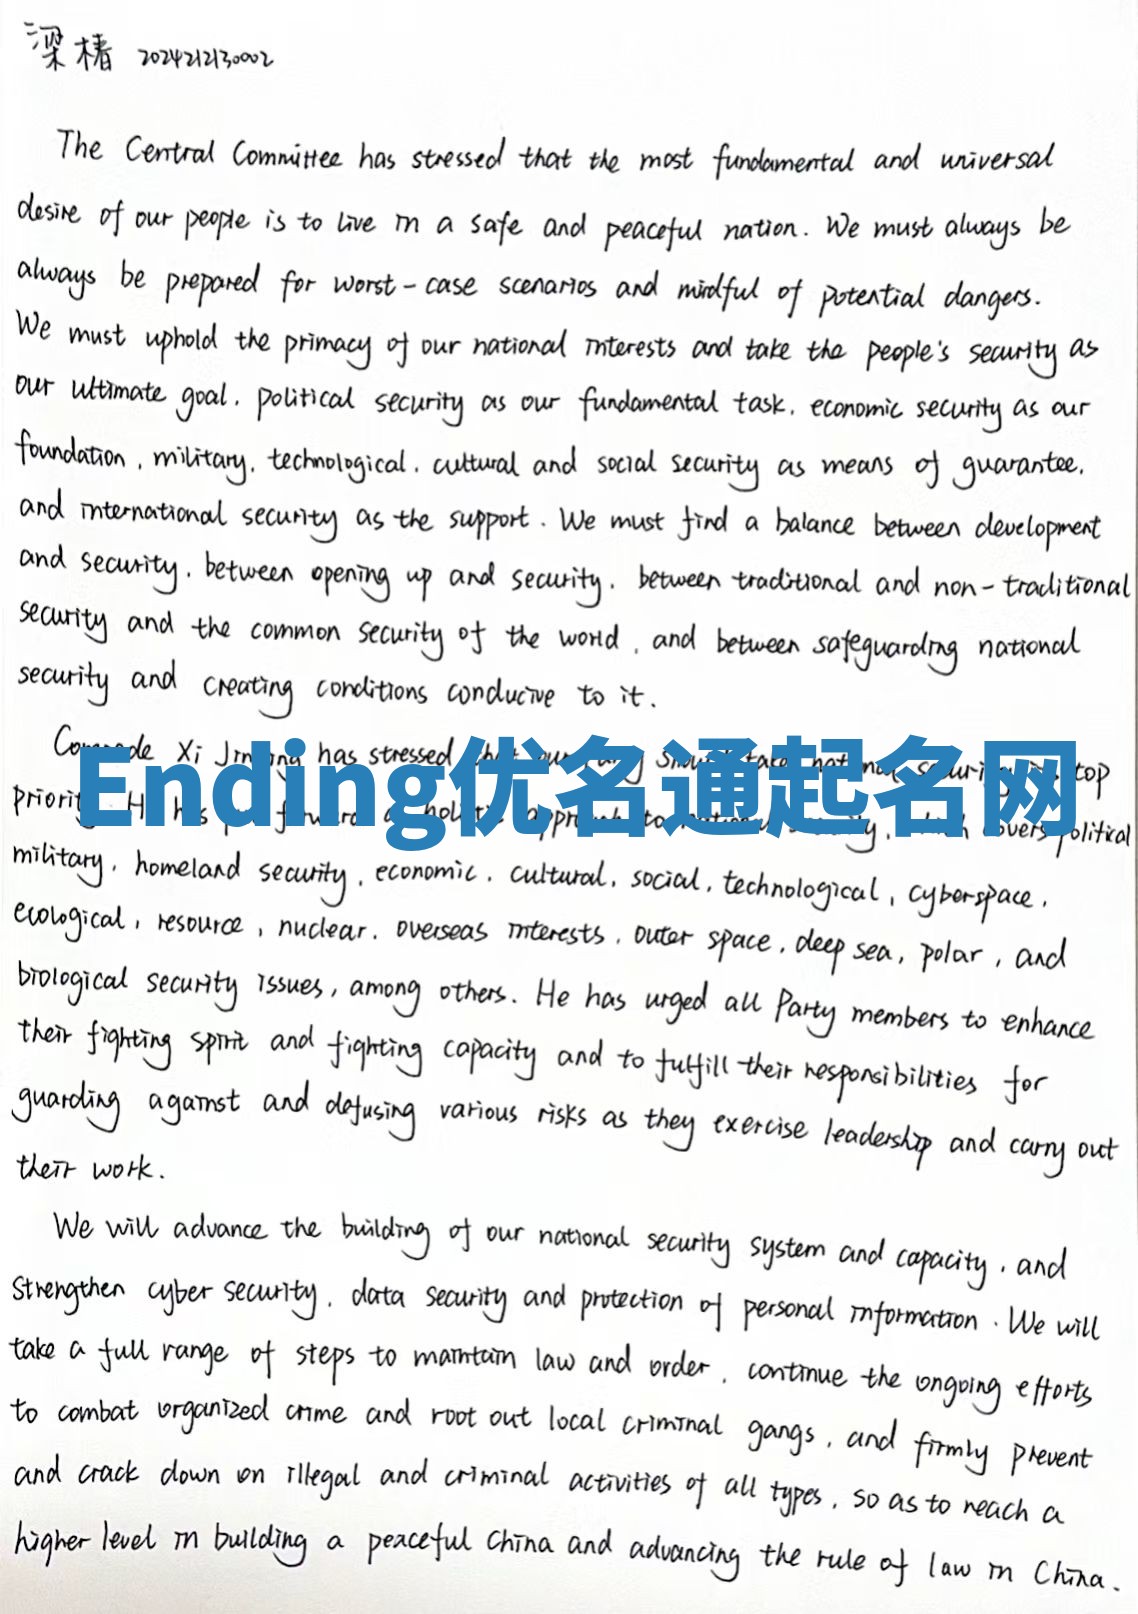 梁椿 2024212130002
The Central Committee has stressed that the most fundamental and universal
desire of our people is to live in a safe and peaceful nation. We must always be
always be prepared for worst-case scenarios and mindful of potential dangers.
We must uphold the primacy of our national interests and take the people's security as
our ultimate goal, political security as our fundamental task, economic security as our
foundation, military, technological, cultural and social security as means of guarantee,
and international security as the support. We must find a balance between development
and security, between opening up and security, between traditional and non-traditional
security and the common security of the world, and between safeguarding national
security and creating conditions conducive to it.
Comrade Xi Jinping has stressed that our Party should take national security top
Ending优名通起名网
priority. He has put forward a holistic approach to national security, which covers political
military, homeland security, economic, cultural, social, technological, cyberspace,
ecological, resource, nuclear, overseas interests, outer space, deep sea, polar, and
biological security issues, among others. He has urged all Party members to enhance
their fighting spirit and fighting capacity and to fulfill their responsibilities for
guarding against and defusing various risks as they exercise leadership and carry out
their work.
We will advance the building of our national security system and capacity, and
strengthen cyber security, data security and protection of personal information. We will
take a full range of steps to maintain law and order, continue the ongoing efforts
to combat organized crime and root out local criminal gangs, and firmly prevent
and crack down on illegal and criminal activities of all types, so as to reach a
higher level in building a peaceful China and advancing the rule of law in China.